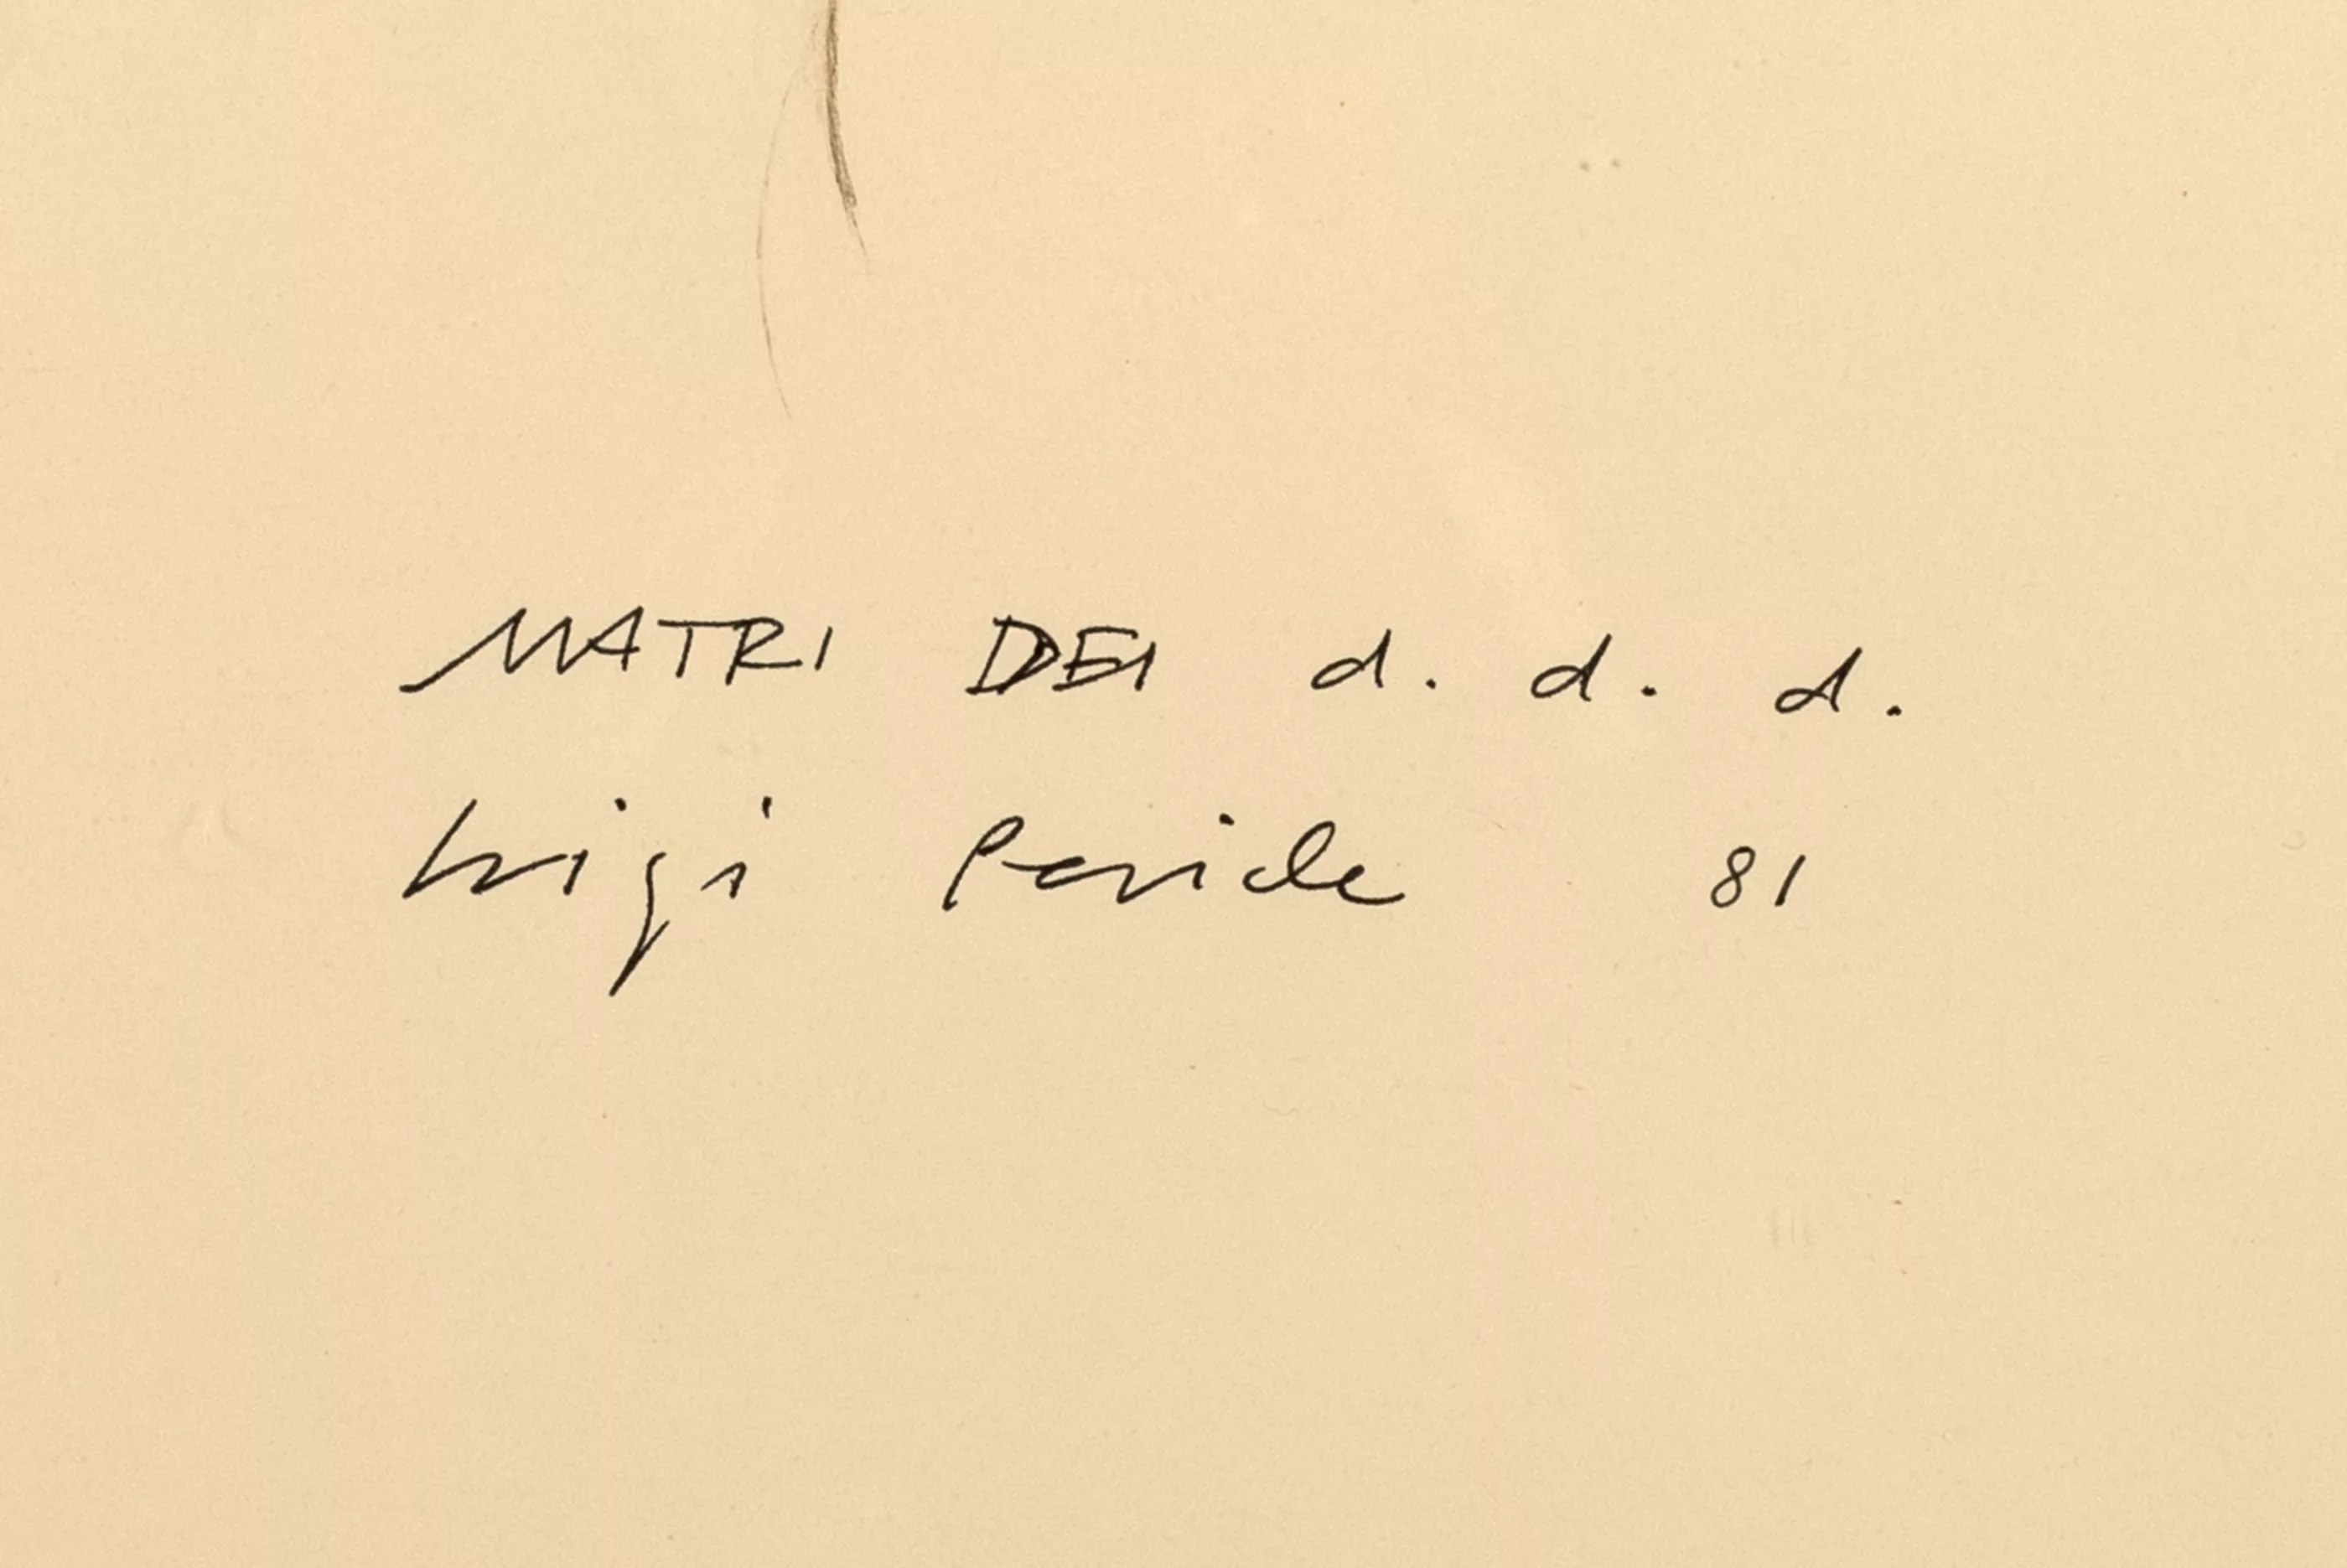 MATRI DEI d. d. d.
Luigi Pericle 81